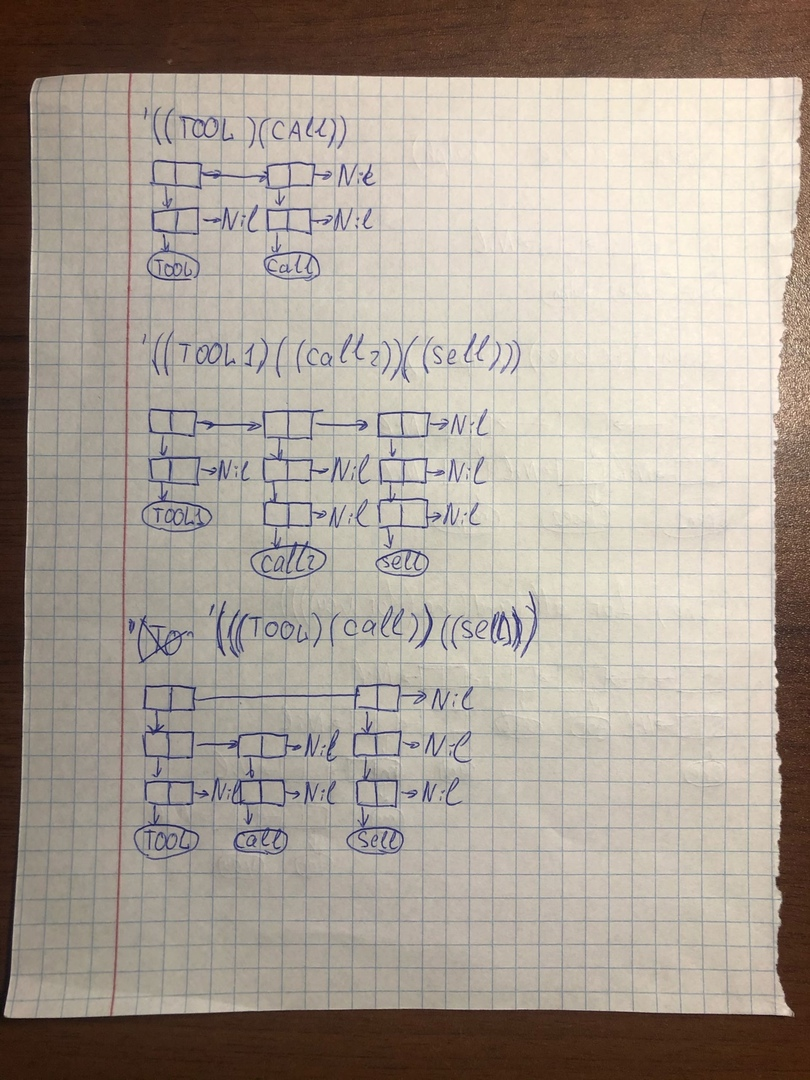 '((TOOL)(CAll))
Nil
Nil Nil
TOOL Call
'((TOOL1)((Call2))((Sell)))
Nil
Nil Nil Nil
Nil Nil
TOOL1 Call2 Sell
'(((TOOL)(Call))((Sell)))
Nil
Nil Nil
Nil Nil Nil
TOOL Call Sell